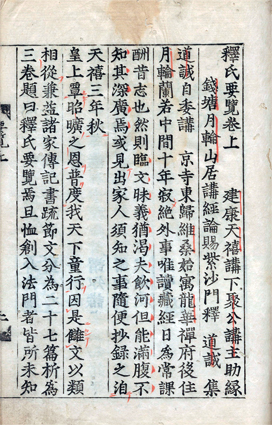 釋氏要覽卷上　建康天禧講下聚公講主助緣
錢塘月輪山居講經論賜紫沙門釋　道誠　集
道誠自委講　京寺東歸維桑始寓龍華禪府後住
月輪蘭若中間十年寂絶外事唯讀藏經日為常課
酬昔志也然則臨文昧義猶渴夫飲河但能滿腹不
知其深廣焉或見出家人須知之事隨便抄録之洎
天禧三年秋
皇上覃昭曠之恩普度我天下童行因是讎文以類
相從兼益諸家傳記書疏節文分為二十七篇析為
三卷題曰釋氏要覽焉且恊創入法門者皆所未知